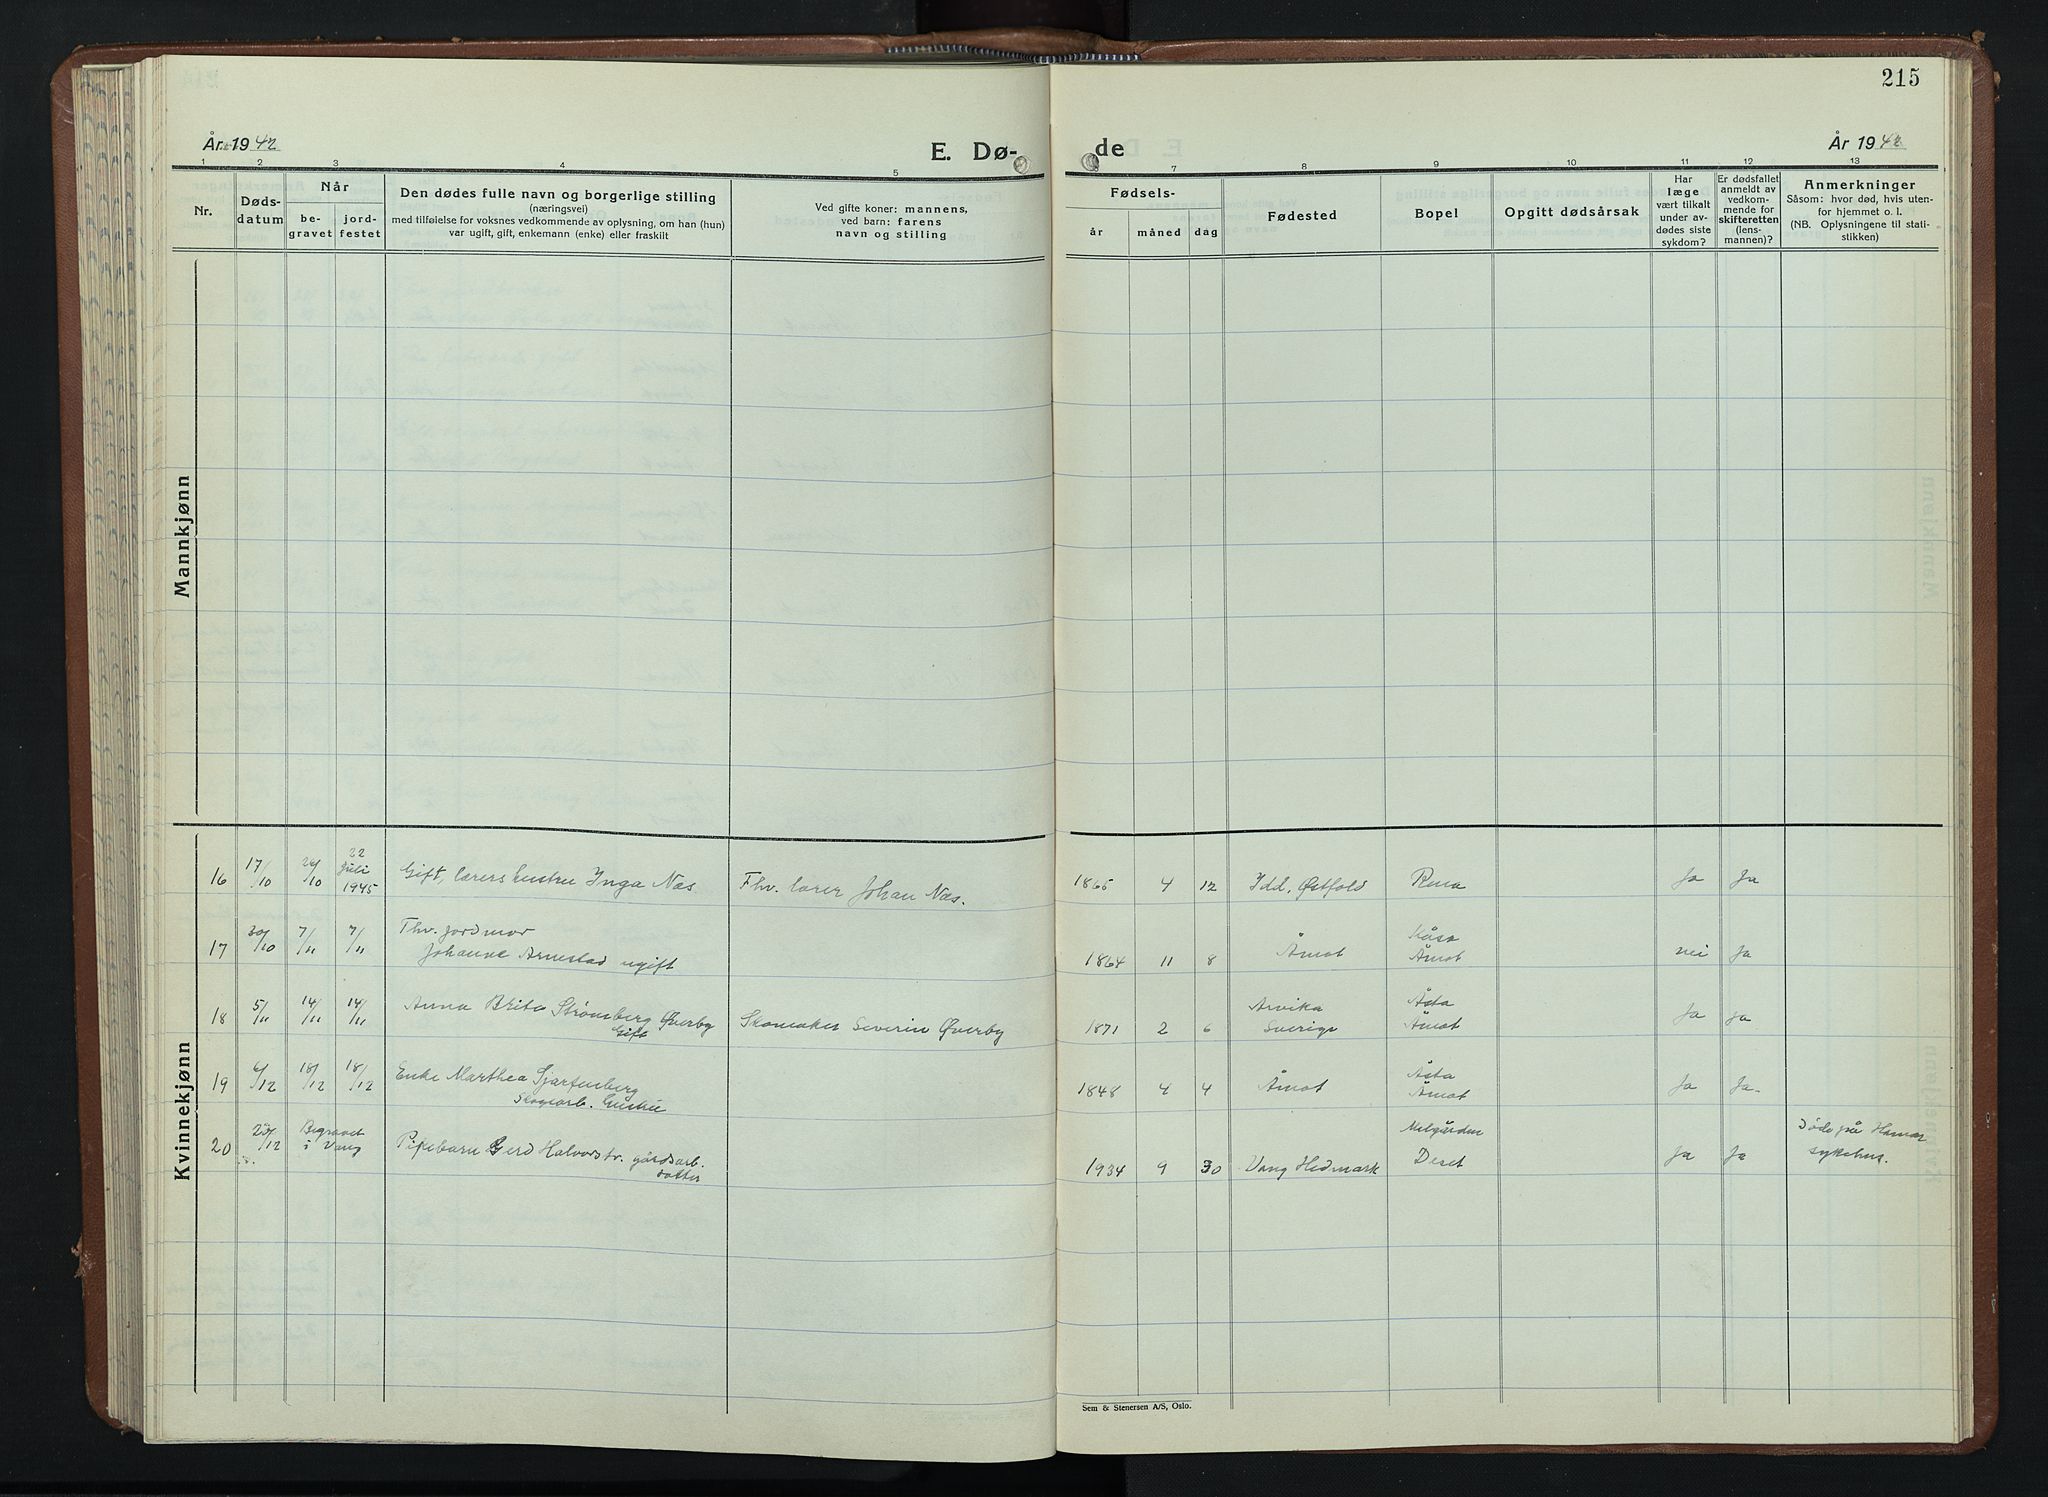 215
År 1942
E. Dø-
de
År 1942
1 2 3 4 5
6 7 8 9 10 11 12 13
Nr.
Døds-
datum
Når
be-
gravet
jord-
festet
Den dødes fulle navn og borgerlige stilling
(næringsvei)
med tilføielse for voksnes vedkommende av oplysning, om han (hun)
var ugift, gift, enkemann (enke) eller fraskilt
Ved gifte koner: mannens,
ved barn: farens
navn og stilling
Fødsels-
år
måned
dag
Fødested
Bopel
Opgitt dødsårsak
Har
læge
vært tilkalt
under av-
dødes siste
sykdom?
Er dødsfallet
anmeldt av
vedkom-
mende for
skifteretten
(lens-
mannen)?
Anmerkninger
Såsom: hvor død, hvis uten-
for hjemmet o. l.
(NB. Oplysningene til stati-
stikken)
Mannkjønn
Kvinnekjønn
16 17/10 24/10 22 Juli 1945 Gift, lærers hustru Inga Næs Fhv. lærer Johan Næs. 1865 4 12 Idd, Østfold Rena Ja Ja
17 30/10 7/11 7/11 Fhv. jordmor
Johanne Arnestad ugift 1864 11 8 Åmot Kåsa Åmot nei Ja
18 5/11 14/11 14/11 Anna Brita Strømsberg Øverby
Gift Skomaker Severin Øverby 1871 2 6 Arvika Sverige Åsta Åmot Ja Ja
19 6/12 18/12 18/12 Enke Marthea
Skogsarb. hustru 1848 4 4 Åmot Åsta Åmot Ja Ja
20 /12 Begravet i Vang Pikebarn Gerd Halvorstr. gårdsarb.
datter 1934 9 30 Vang Hedmark Melgården Deset Ja Ja Døde på Hamar
sykehus.
Sem & Stenersen A/S, Oslo.